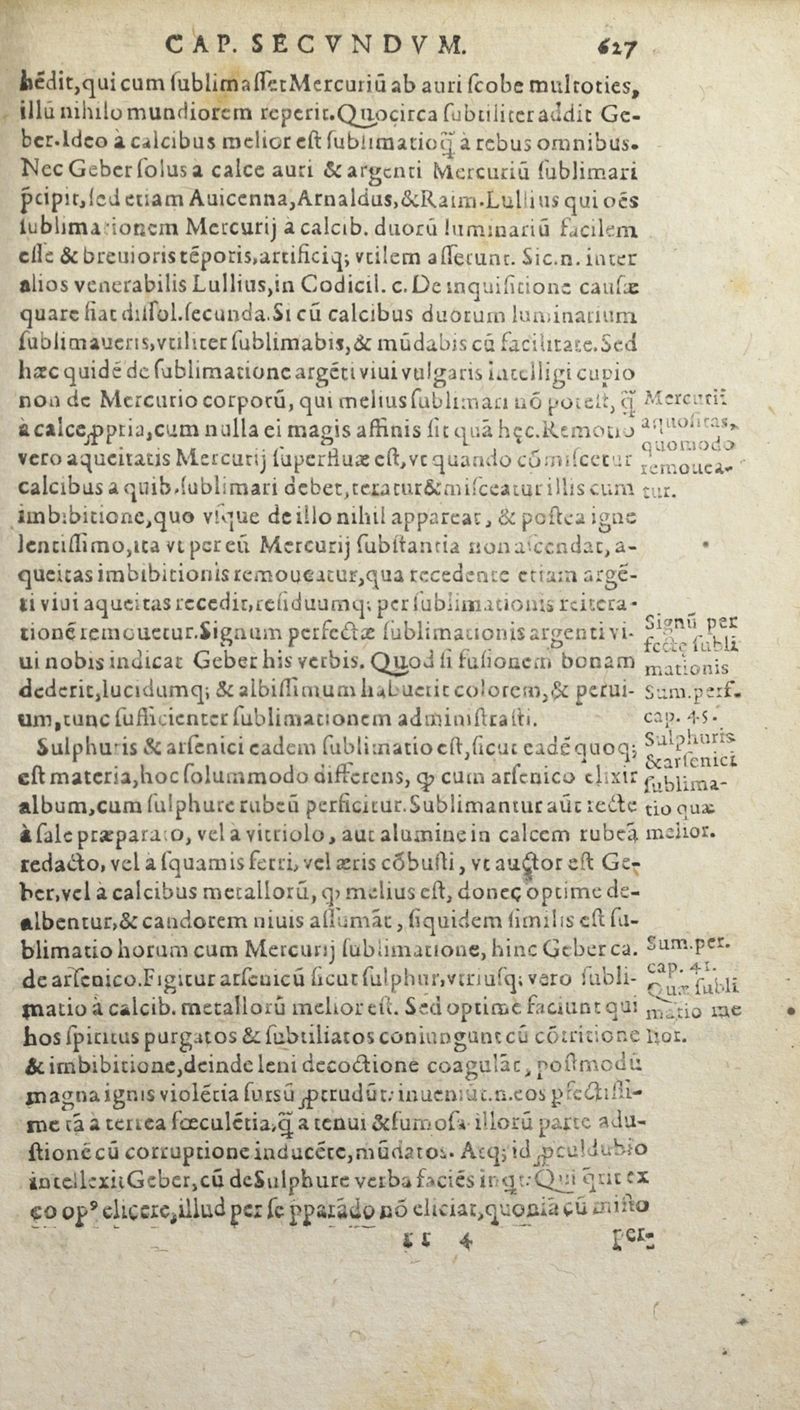 CAP. SECVNDVM. 627
hēdit,qui cum ſublimaſſet Mercuriū ab auri ſcobe multoties,
illū nihilo mundiorem reperit. Quocirca ſubtiliter addit Ge-
ber. Ideo à calcibus melior eſt ſublimatio q̄ à rebus omnibus.
Nec Geber ſolus a calce auri & argenti Mercuriū ſublimari
p̄cipit, ſed etiam Auicenna, Arnaldus, & Raim. Lullius qui oēs
ſublimationem Mercurij à calcib. duorū luminariū facilem
eſſe & breuioris tēporis, artificiq; vtilem aſſerunt. Sic.n. inter
alios venerabilis Lullius, in Codicil. c. De inquiſitione cauſæ
quare fiat diſſol. ſecunda. Si cū calcibus duorum luminarium
ſublimaueris, vtiliter ſublimabis, & mūdabis cū facilitate. Sed
hæc quidē de ſublimatione argēti viui vulgaris intelligi cupio
non de Mercurio corporū, qui melius ſublimari nō poteſt, q̄
à calce ꝓpria, cum nulla ei magis affinis ſit quā hęc. Remotio
vero aqueitatis Mercurij ſuperfluæ eſt, vt quando cōmiſcetur
calcibus a quib. ſublimari debet, teratur & miſceatur illis cum
imbibitione, quo vſque de illo nihil appareat, & poſtea igne
lentiſſimo, ita vt per eū Mercurij ſubſtantia non aſcendat, a-
queitas imbibitionis remoueatur, qua recedente etiam argē-
ti viui aqueitas recedit, reſiduumq; per ſublimationis reitera-
tionē remouetur. Signum perfectæ ſublimationis argenti vi-
ui nobis indicat Geber his verbis. Quod ſi fuſionem bonam
dederit, lucidumq; & albiſſimum habuerit colorem, & perui-
um, tunc ſufficienter ſublimationem adminiſtraſti.
Sulphuris & arſenici eadem ſublimatio eſt, ſicut eadē quoq;
eſt materia, hoc ſolummodo differens, ꝙ cum arſenico elixir
album, cum ſulphure rubeū perficitur. Sublimantur aūt recte
à ſale præparato, vel à vitriolo, aut alumine in calcem rubeā
redacto, vel à ſquamis ferri, vel æris cōbuſti, vt auctor eſt Ge-
ber, vel à calcibus metallorū, ꝙ melius eſt, donec optime de-
albentur, & candorem niuis aſſumāt, ſiquidem ſimilis eſt ſu-
blimatio horum cum Mercurij ſublimatione, hinc Geber ca.
de arſenico. Figitur arſenicū ſicut ſulphur, vtriuſq; vero ſubli-
matio à calcib. metallorū melior eſt. Sed optime faciunt qui
hos ſpiritus purgatos & ſubtiliatos coniungunt cū cōtritione
& imbibitione, deinde leni decoctione coagulāt, poſtmodū
magna ignis violētia ſurſū ꝓtrudūt: inueniūt.n. eos p̄fectiſſi-
me tā a terrea fœculētia, q̄ a tenui & fumoſa illorū parte adu-
ſtionē cū corruptione inducēte, mūdatos. Atq; id ꝓculdubio
intellexit Geber, cū de Sulphure verba faciēs inqt: Qui q̄rit ex
eo opꝰ elicere, illud per ſe p̄parādo nō eliciat, quoniā cū miſto
rr 4 per-
Mercurii
aquoſitas,
quomodo
remouea-
tur.
Signū per
fecte ſubli
mationis
Sum. perf.
cap. 45.
Sulphuris
& arſenici
ſublima-
tio quæ
melior.
Sum. per.
cap. 41.
Quæ ſubli
matio me
lior.